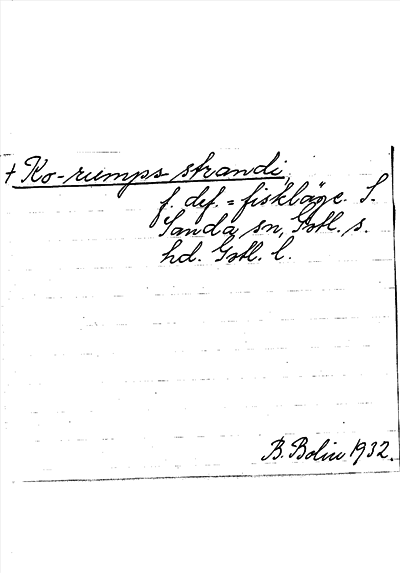 + Ko-rumps strandi,
f. def. = fiskläge. S.
Sanda sn, Gotl. s.
hd. Gotl. l.
B. Bolin 1932.